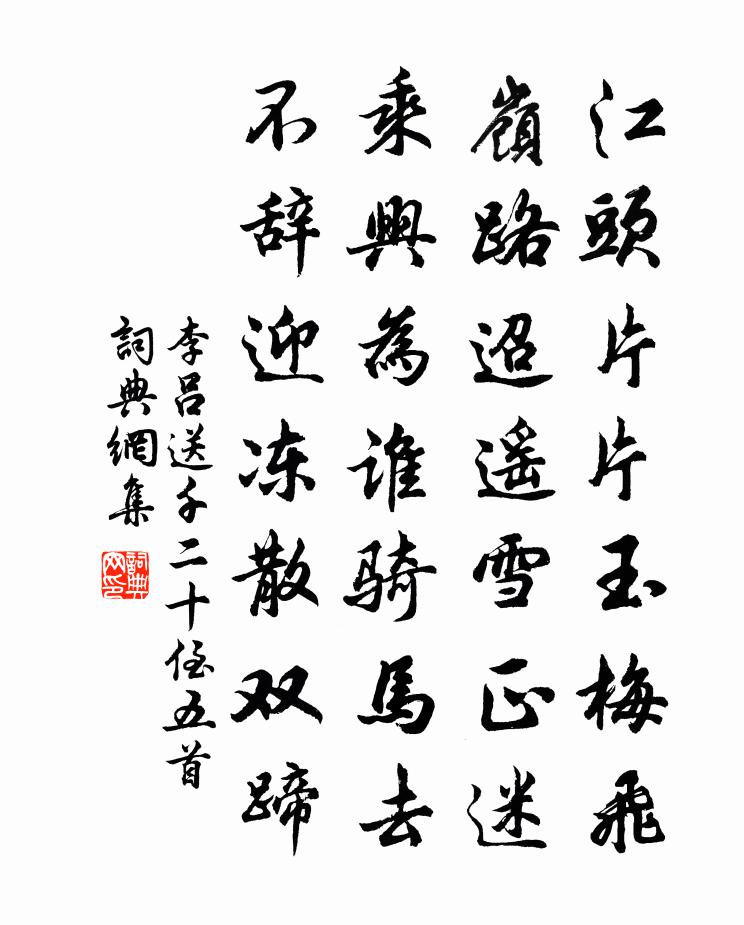 江頭片片玉梅飛
嶺路迢遥雪正迷
乘興為誰騎馬去
不辞迎冻散双蹄
李呂送千二十侄五首
詞典網集
詞典网印